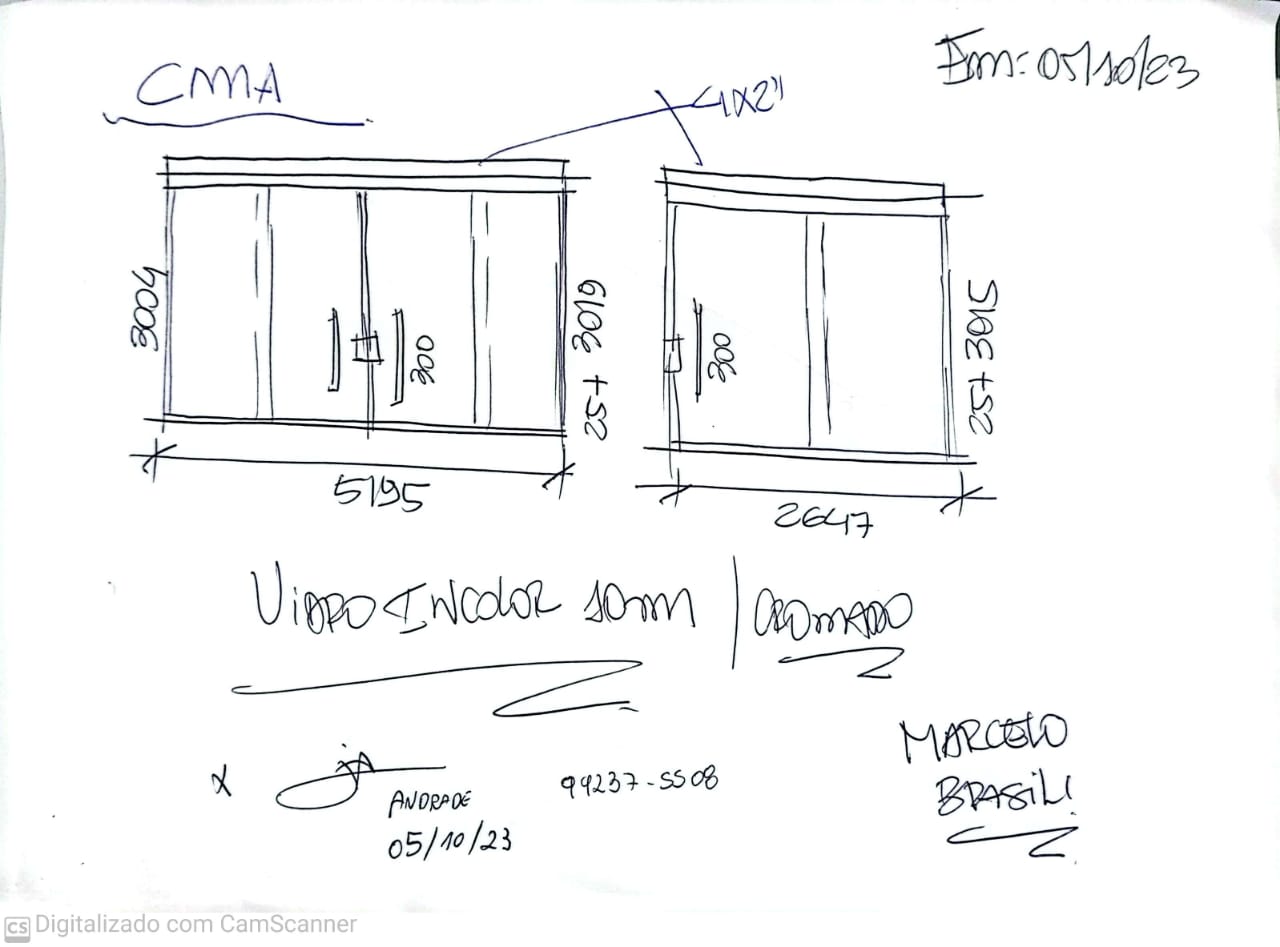 CMA
Em: 05/10/23
4X2"
3004
300
25 + 3019
5195
300
25+ 3015
2647
VIDRO INCOLOR 10mm | CROMADO
MARCELO
BRASIL!
X
JA
ANDRADE
99237-5508
05/10/23
CS Digitalizado com CamScanner